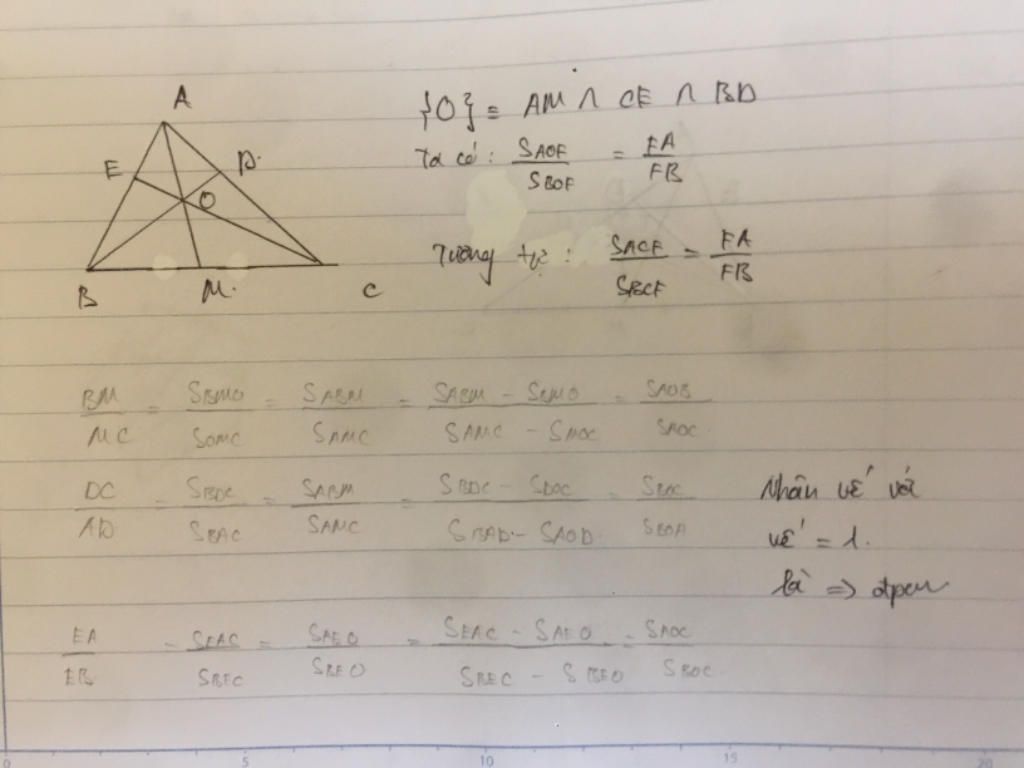 A
{O} = AM ∩ CE ∩ BD
E D.
Ta có: SAOE/SBOF = EA/FB
O
Tương tự: SACF/SBCF = FA/FB
B M. C
BM/MC = SBMO/SOMC = SABM/SAMC = SABM - SBMO/SAMC - SMOC = SAOB/SAOC
DC/AD = SBDC/SBAC = SABM/SAMC = SBDC - SDOC/SBAD - SAOD = SBOC/SBOA
Nhân vế với
vế = 1.
là => đpcm
EA/EB = SEAC/SBEC = SAEO/SBEO = SEAC - SAEO/SBEC - SBEO = SAOC/SBOC
0 5 10 15 20